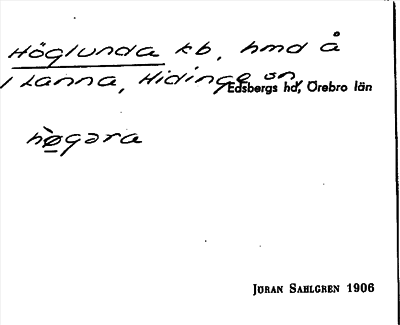 Höglunda kb, hmd å
1 Lanna, Hidinge sn,
Edsbergs hd, Örebro län
hø̀gəra
JÖRAN SAHLGREN 1906